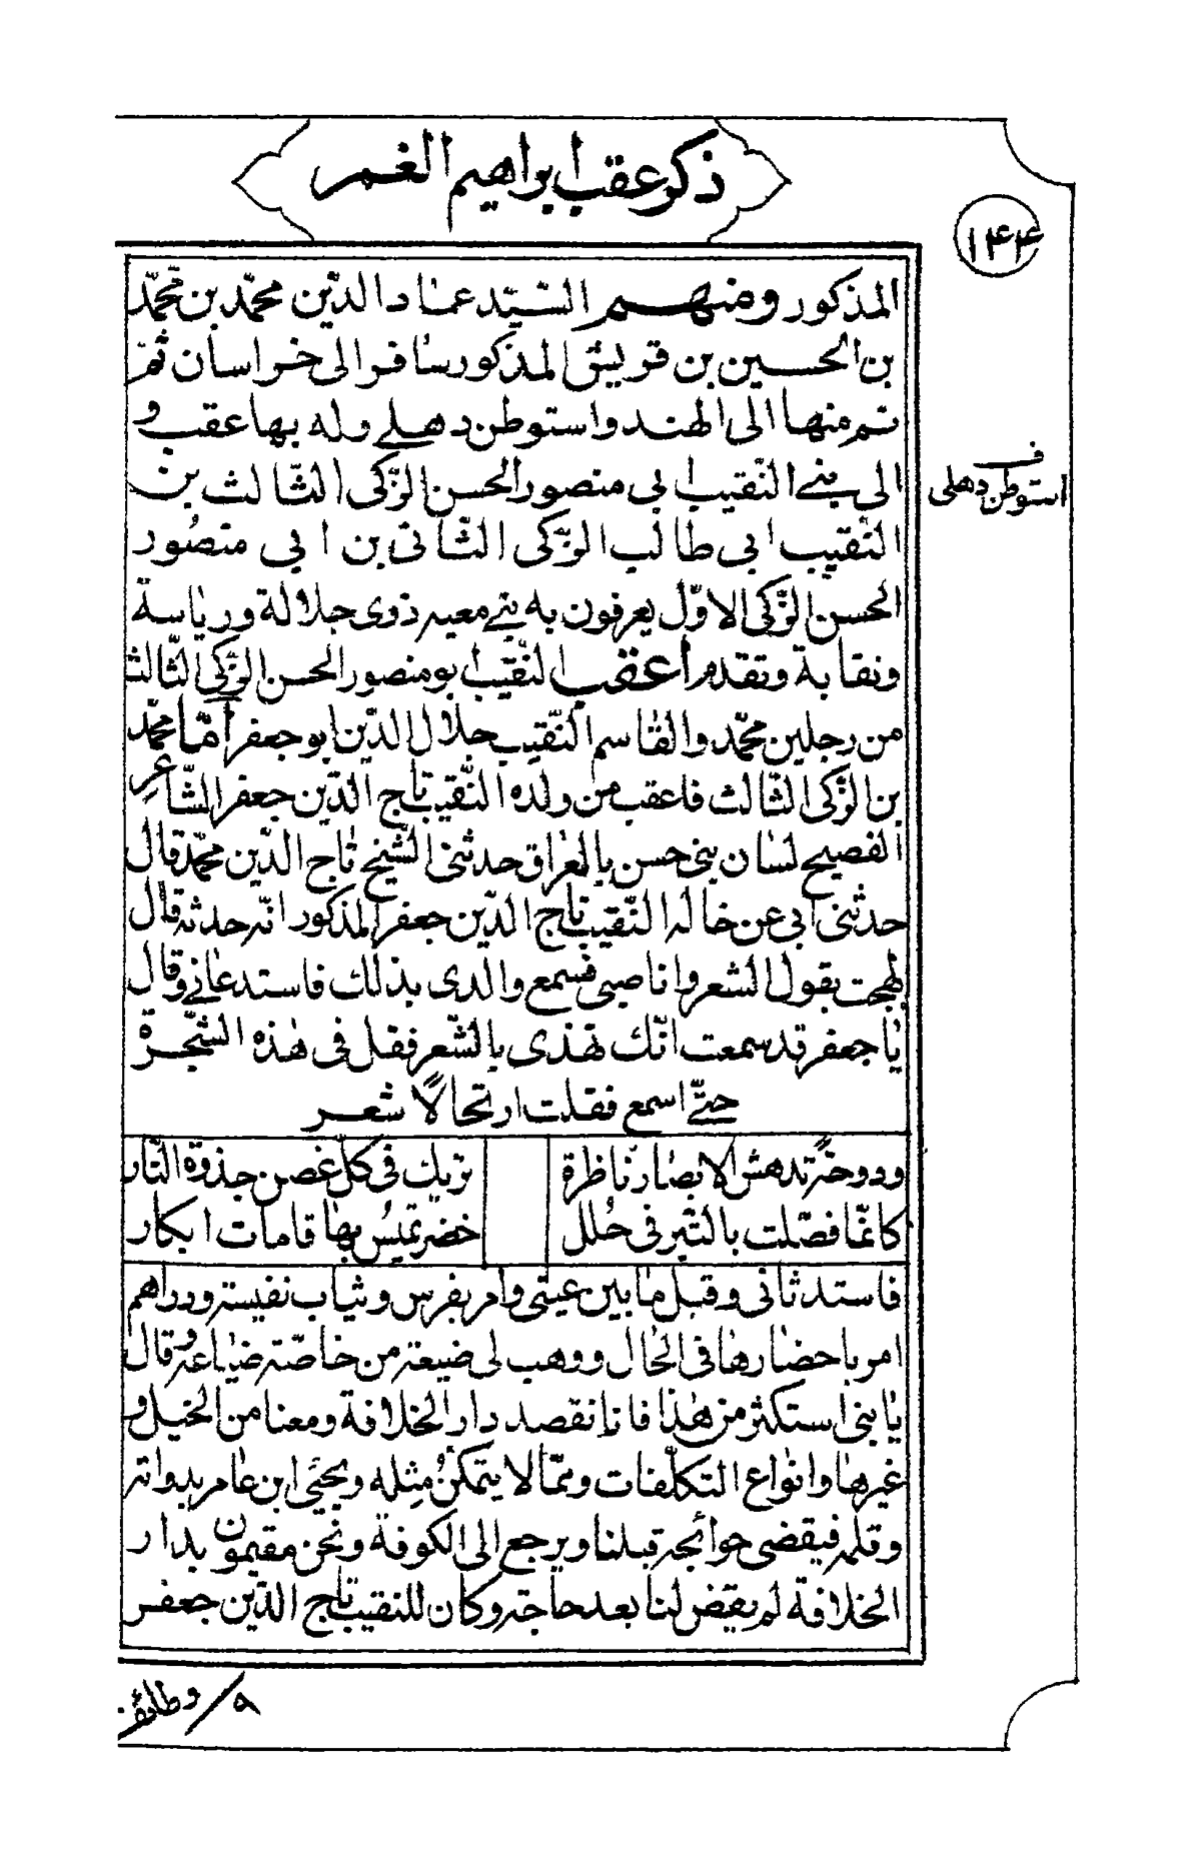 ذكر عقب ابراهيم الغمر
١٤٤
المذكور ومنهم السّيّد عماد الدّين محمّد بن محمّد
بن الحسين بن قريش المذكور سافر الى خراسان ثمّ
ثم منها الى الهند واستوطن دهلے وله بها عقب و
الى بنے النّقيب ابى منصور الحسن الزّكى الثّالث بن
استوطن دهلى
ف
النّقيب ابى طالب الزّكى الثّانى بن ابى منصور
الحسن الزّكى الاوّل يعرفون به بنے معيه ذوى جلالة ورياسة
ونقابة وتقدم أعقب النّقيب ابو منصور الحسن الزّكى الثّالث
من رجلين محمّد والقاسم النّقيب جلال الدّين ابو جعفر أمّا محمّد
بن الزّكى الثّالث فاعقب من ولده النّقيب تاج الدّين جعفر الشّاعر
الفصيح لسان بنى حسن بالعراق حدثنى الشّيخ تاج الدّين محمّد قال
حدثنى ابى عن خاله النّقيب تاج الدّين جعفر المذكور انّه حدثه قال
لهجت بقول الشعر وانا صبى فسمع والدى بذلك فاستدعانے وقال
يا جعفر قد سمعت انّك تهذى بالشّعر فقل فى هٰذه الشّجرة
حتّے اسمع فقلت ارتحالًا شعر
ودوحةً تدهش الابصار ناظرة تريك فى كلّ غصن جذوة النّار
كانّما فصّلت بالتّبر فى حُلل خضر تميسُ بها قامات ابكار
فاستدثانى وقبل ما بين عينى وامر بفرس وثياب نفيسة ودراهم
امر باحضارها فى الحال ووهب لى ضيعة من خاصّة ضياعه وقال
يا بنى استكثر من هٰذا فانا نقصد دار الخلافة ومعنا من الخيل و
غيرها وانواع التكلّفات وممّا لا يتمكنُ مثله ويجئى ابن عامر بدواته
وقلمه فيقضى حوائجه قبلنا ويرجع الى الكوفة ونحن مقيمون بدار
الخلافة لم يقض لنا بعد حاجة وكان للنقيب تاج الدّين جعفر
٩/ وظائف